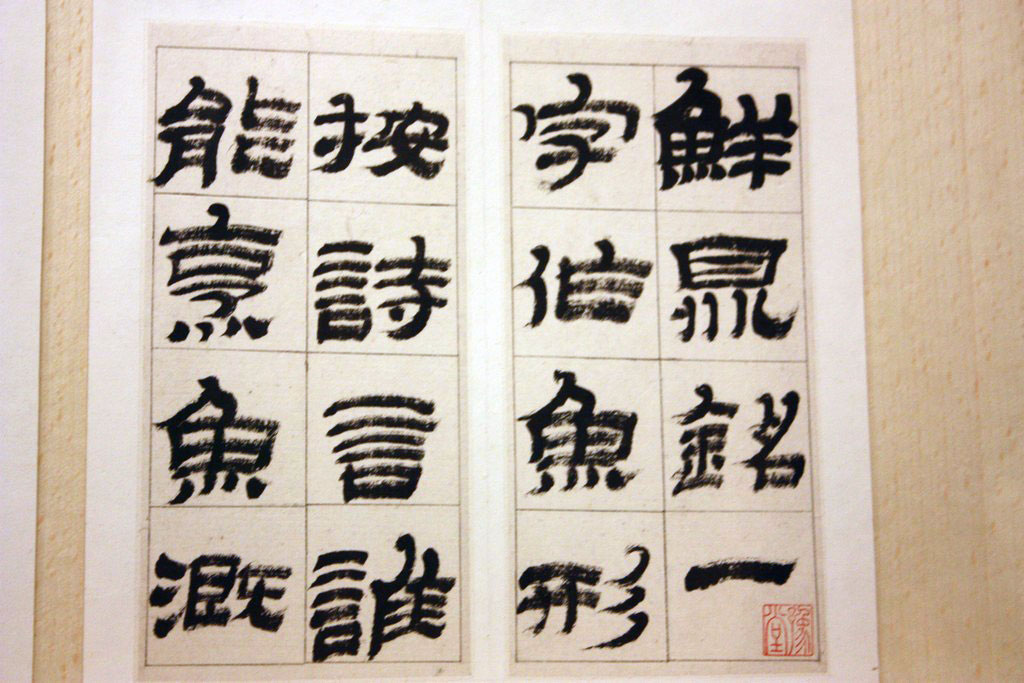 鮮鼎銘一
字伯魚形
按詩言誰
能烹魚溉
豫堂